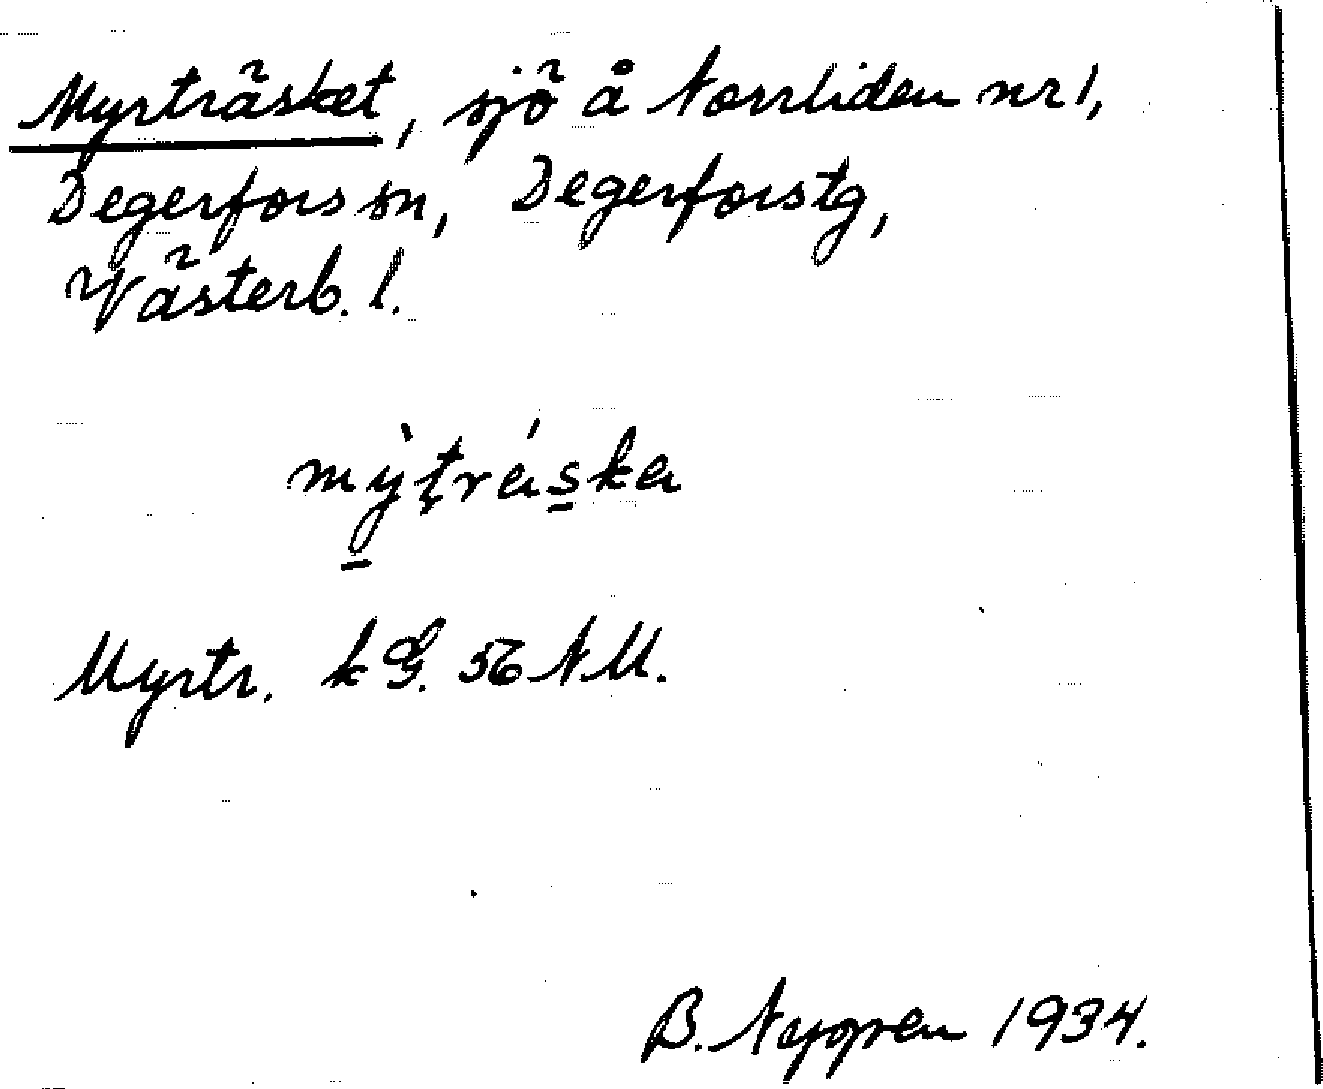 Myrträsket, sjö å Norrliden nr 1,
Degerfors sn, Degerforstg,
Västerb. l.
mỳṭráska
Myrtr. k G. 56 NM.
B. Nygren 1934.